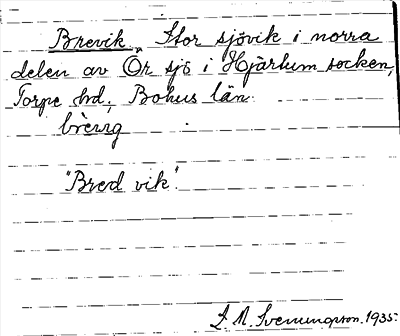 Brevik. Stor sjövik i norra
delen av Ör sjö i Hjärtum socken,
Torpe hd., Bohus län.
"Bred vik".
1935.